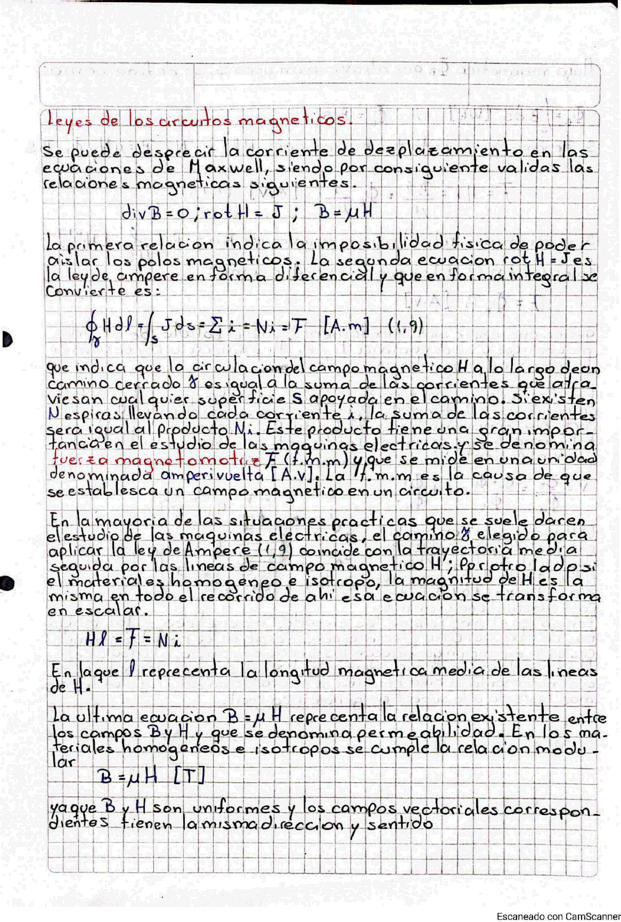 Leyes de los circuitos magneticos.
Se puede desprecir la corriente de dezplazamiento en las
ecuaciones de Maxwell, siendo por consiguiente validas las
relaciones magneticas siguientes.
div B = 0 ; rot H = J ; B = μH
La primera relacion indica la imposibilidad fisica de poder
aislar los polos magneticos. La segunda ecuacion rot H = J es
la ley de ampere en forma diferencial y que en forma integral se
convierte es:
∮γ H dl = ∫s J ds = Σ i = Ni = F [A.m] (1,9)
que indica que la circulacion del campo magnetico H a lo largo de un
camino cerrado γ es igual a la suma de las corrientes que atra-
viesan cualquier superficie S apoyada en el camino. Si existen
N espiras llevando cada corriente i, la suma de las corrientes
sera igual al producto Ni. Este producto tiene una gran impor-
tancia en el estudio de las maquinas electricas. y se denomina
fuerza magnetomotriz F (f.m.m) y que se mide en una unidad
denominada amperivuelta [A.v]. La f.m.m es la causa de que
se establesca un campo magnetico en un circuito.
En la mayoria de las situaciones practicas que se suele dar en
el estudio de las maquinas electricas, el camino γ elegido para
aplicar la ley de Ampere (1,9) coincide con la trayectoria media
seguida por las lineas de campo magnetico H; Por otro lado si
el material es homogeneo e isotropo, la magnitud de H es la
misma en todo el recorrido de ahi esa ecuacion se transforma
en escalar.
Hl = F = Ni
En la que l reprecenta la longitud magnetica media de las lineas
de H.
La ultima ecuacion B = μ H reprecenta la relacion existente entre
los campos B y H y que se denomina permeabilidad. En los ma-
teriales homogéneos e isotropos se cumple la relacion modu-
lar
B = μH [T]
ya que B y H son uniformes y los campos vectoriales correspon-
dientes tienen la misma direccion y sentido
Escaneado con CamScanner